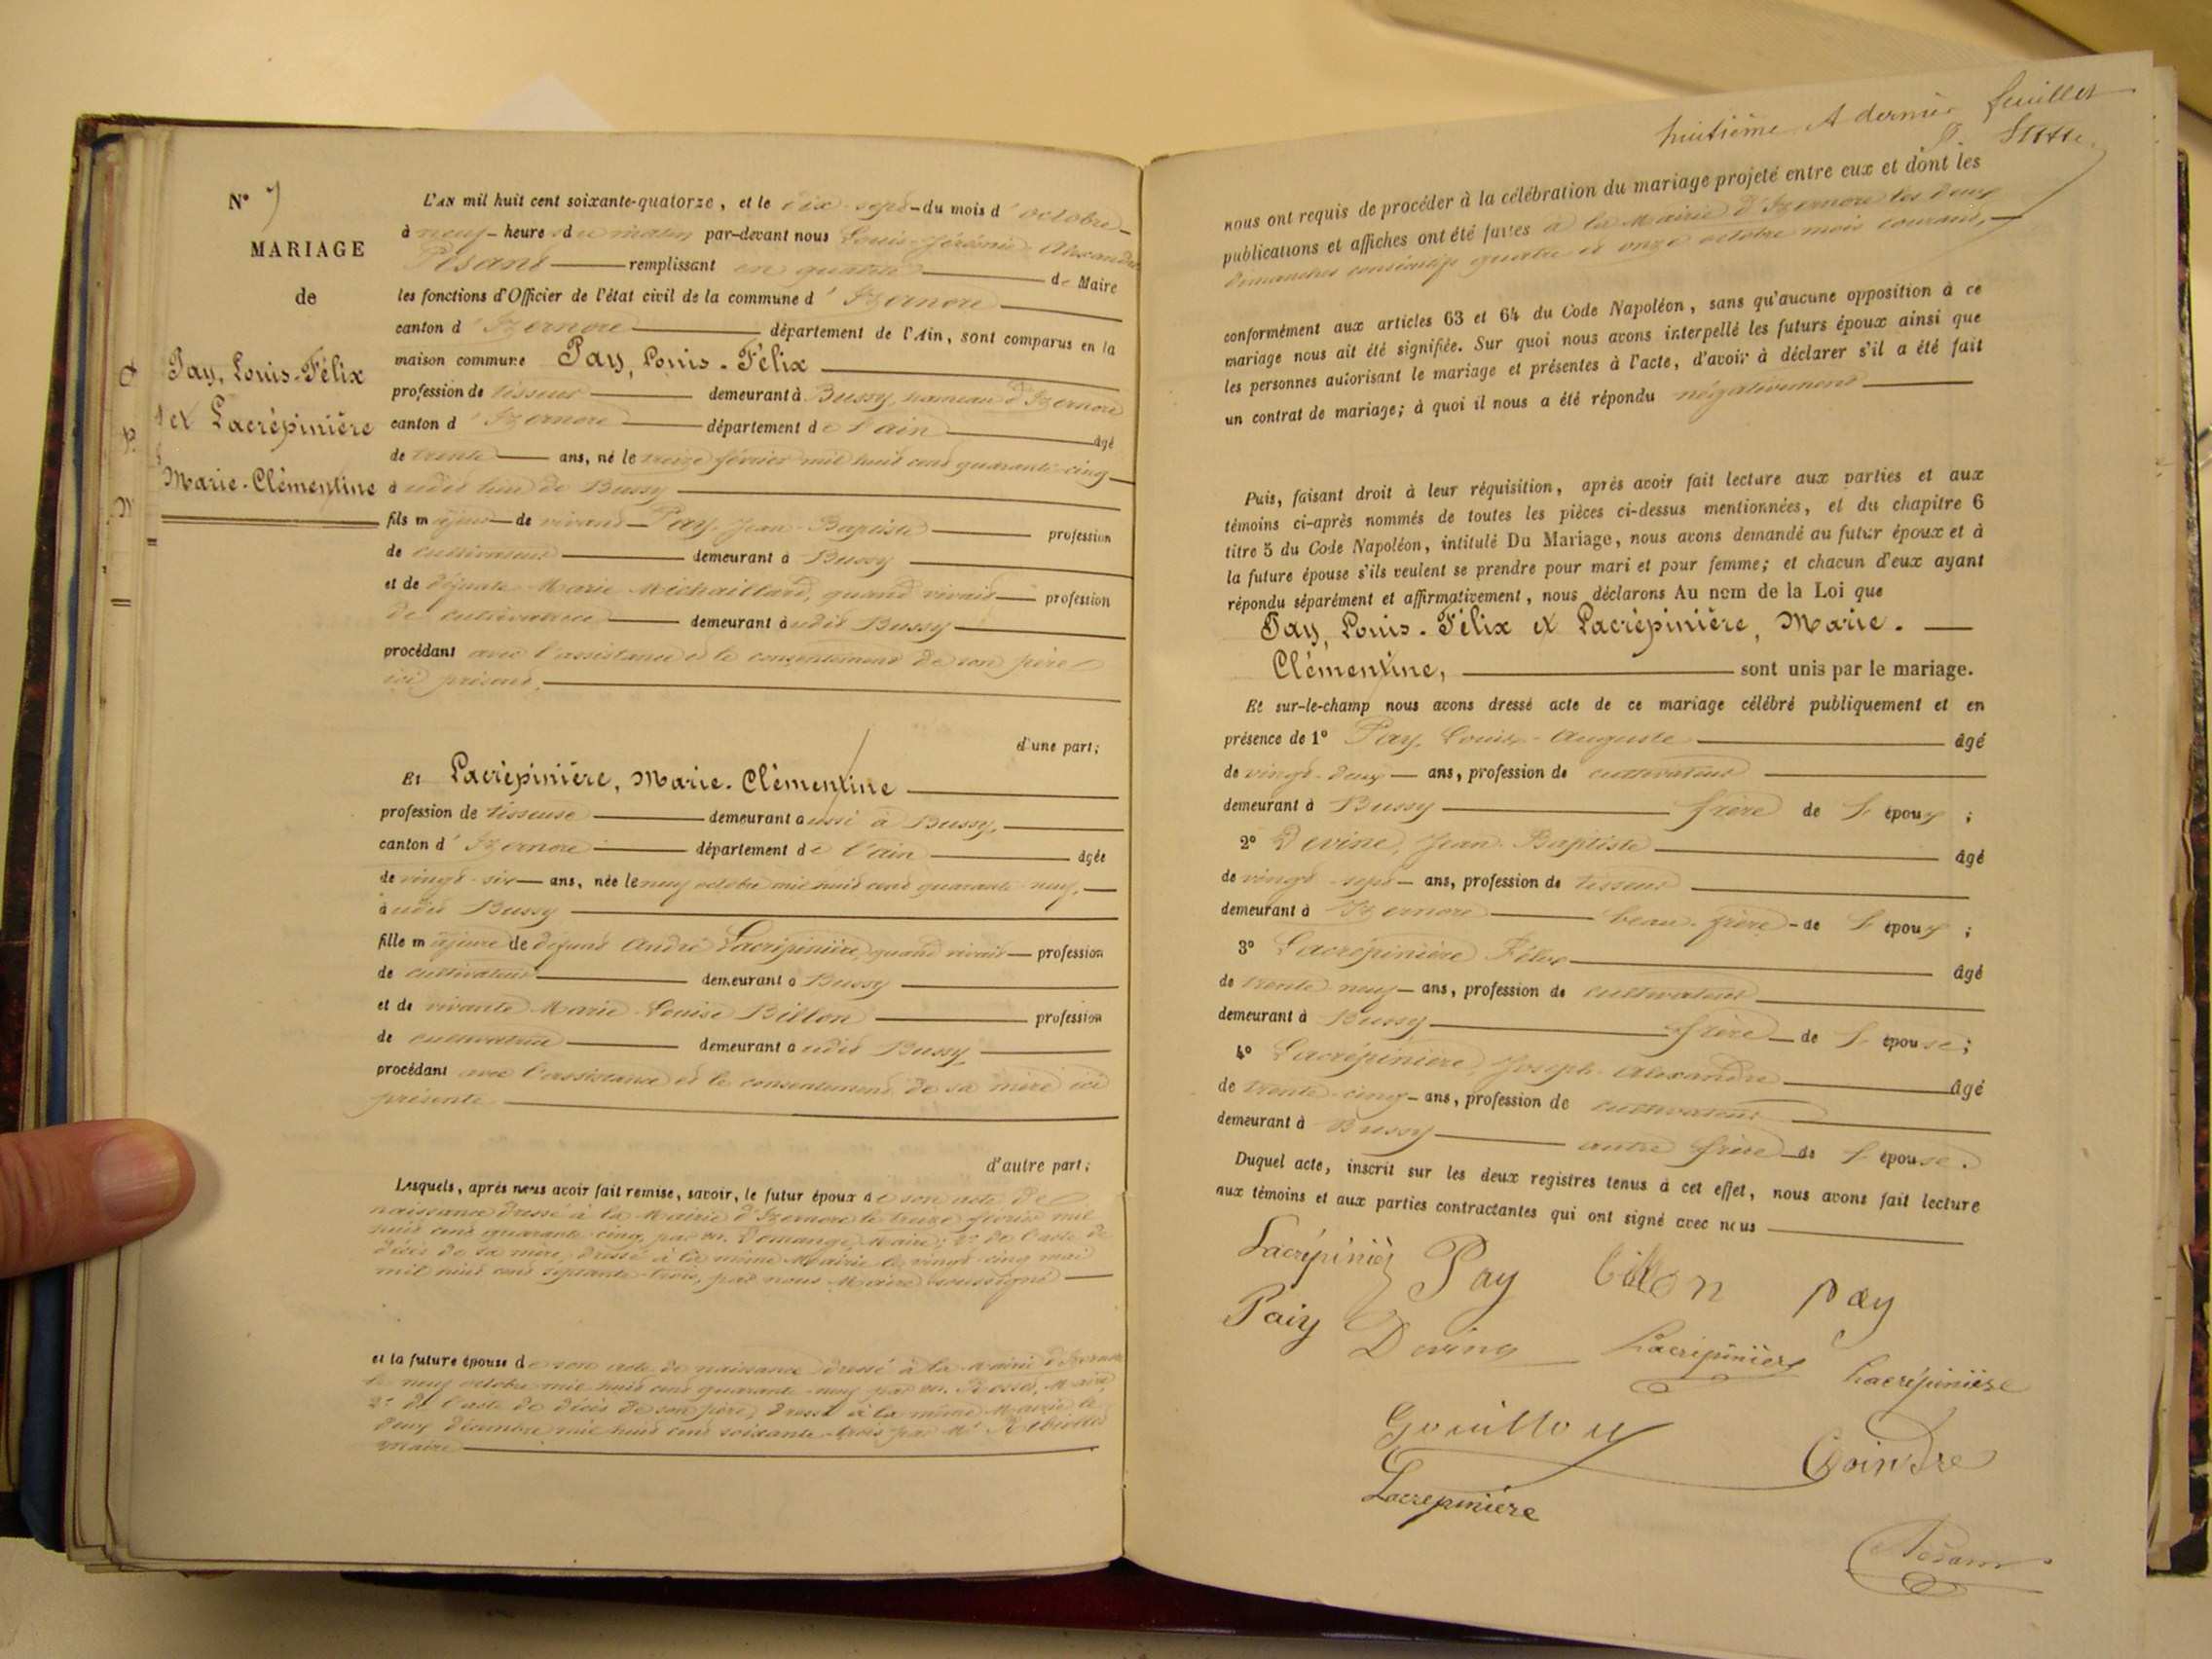 N° 7
MARIAGE
de
Pay, Louis-Félix
et Lacrépinière
Marie-Clémentine
L'AN mil huit cent soixante-quatorze, et le dix-sept du mois d'octobre
à neuf heures du matin par-devant nous Louis-Jérémie Alexandre
Pésant remplissant en qualité de Maire
les fonctions d'Officier de l'état civil de la commune d'Izernore
canton d'Izernore département de l'Ain, sont comparus en la
maison commune Pay, Louis-Félix
profession de tisseur demeurant à Bussy, hameau d'Izernore
canton d'Izernore département de l'ain âgé
de trente ans, né le treize février mil huit cent quarante-cinq
à udit lieu de Bussy
fils majeur de vivant Pay, Jean-Baptiste profession
de cultivateur demeurant à Bussy
et de défunte Marie Michaillard, quand vivait profession
de cultivatrice demeurant à udit Bussy
procédant avec l'assistance et le consentement de son père
ici présent,
d'une part;
Et Lacrépinière, Marie-Clémentine
profession de tisseuse demeurant aussi à Bussy,
canton d'Izernore département de l'ain âgée
de vingt-six ans, née le neuf octobre mil huit cent quarante-neuf,
à udit Bussy
fille majeure de défunt André Lacrépinière, quand vivait profession
de cultivateur demeurant à Bussy
et de vivante Marie Louise Billon profession
de cultivatrice demeurant a udit Bussy
procédant avec l'assistance et le consentement de sa mère ici
présente
d'autre part;
Lesquels, après nous avoir fait remise, savoir, le futur époux de son acte de
naissance dressé à la Mairie d'Izernore le treize février mil
huit cent quarante-cinq par m. Domange, Maire; 2° de l'acte de
décès de sa mère, dressé à la même Mairie le vingt-cinq mai
mil huit cent septante-trois, par nous Maire soussigné
et la future épouse de son acte de naissance dressé à la Mairie d'Izernore
le neuf octobre mil huit cent quarante-neuf par m. Maire,
2° de l'acte de décès de son père, dressé à la même Mairie le
deux décembre mil huit cent soixante-trois par Mr
maire
huitième & dernier feuillet
nous ont requis de procéder à la célébration du mariage projeté entre eux et dont les
publications et affiches ont été faites à la Mairie d'Izernore les deux
dimanches consécutifs quatre et onze octobre mois courant,
conformément aux articles 63 et 64 du Code Napoléon, sans qu'aucune opposition à ce
mariage nous ait été signifiée. Sur quoi nous avons interpellé les futurs époux ainsi que
les personnes autorisant le mariage et présentes à l'acte, d'avoir à déclarer s'il a été fait
un contrat de mariage; à quoi il nous a été répondu négativement
Puis, faisant droit à leur réquisition, après avoir fait lecture aux parties et aux
témoins ci-après nommés de toutes les pièces ci-dessus mentionnées, et du chapitre 6
titre 5 du Code Napoléon, intitulé Du Mariage, nous avons demandé au futur époux et à
la future épouse s'ils veulent se prendre pour mari et pour femme; et chacun d'eux ayant
répondu séparément et affirmativement, nous déclarons Au nom de la Loi que
Pay, Louis-Félix et Lacrépinière, Marie-
Clémentine, sont unis par le mariage.
Et sur-le-champ nous avons dressé acte de ce mariage célébré publiquement et en
présence de 1° Pay, Louis-Auguste âgé
de vingt-deux ans, profession de cultivateur
demeurant à Bussy frère de l'époux;
2° Devine, Jean-Baptiste âgé
de vingt-sept ans, profession de tisseur
demeurant à Izernore beau-frère de l'époux;
3° Lacrépinière Félix âgé
de trente-neuf ans, profession de cultivateur
demeurant à Bussy frère de l'épouse;
4° Lacrépinière, Joseph-Alexandre âgé
de trente-cinq ans, profession de cultivateur
demeurant à Bussy autre frère de l'épouse.
Duquel acte, inscrit sur les deux registres tenus à cet effet, nous avons fait lecture
aux témoins et aux parties contractantes qui ont signé avec nous
Lacrépinièr Pay billon pay
Paiy Devine Lacrépinière Lacrépinière
Gouillou Goindre
Lacrepinière
Pésant